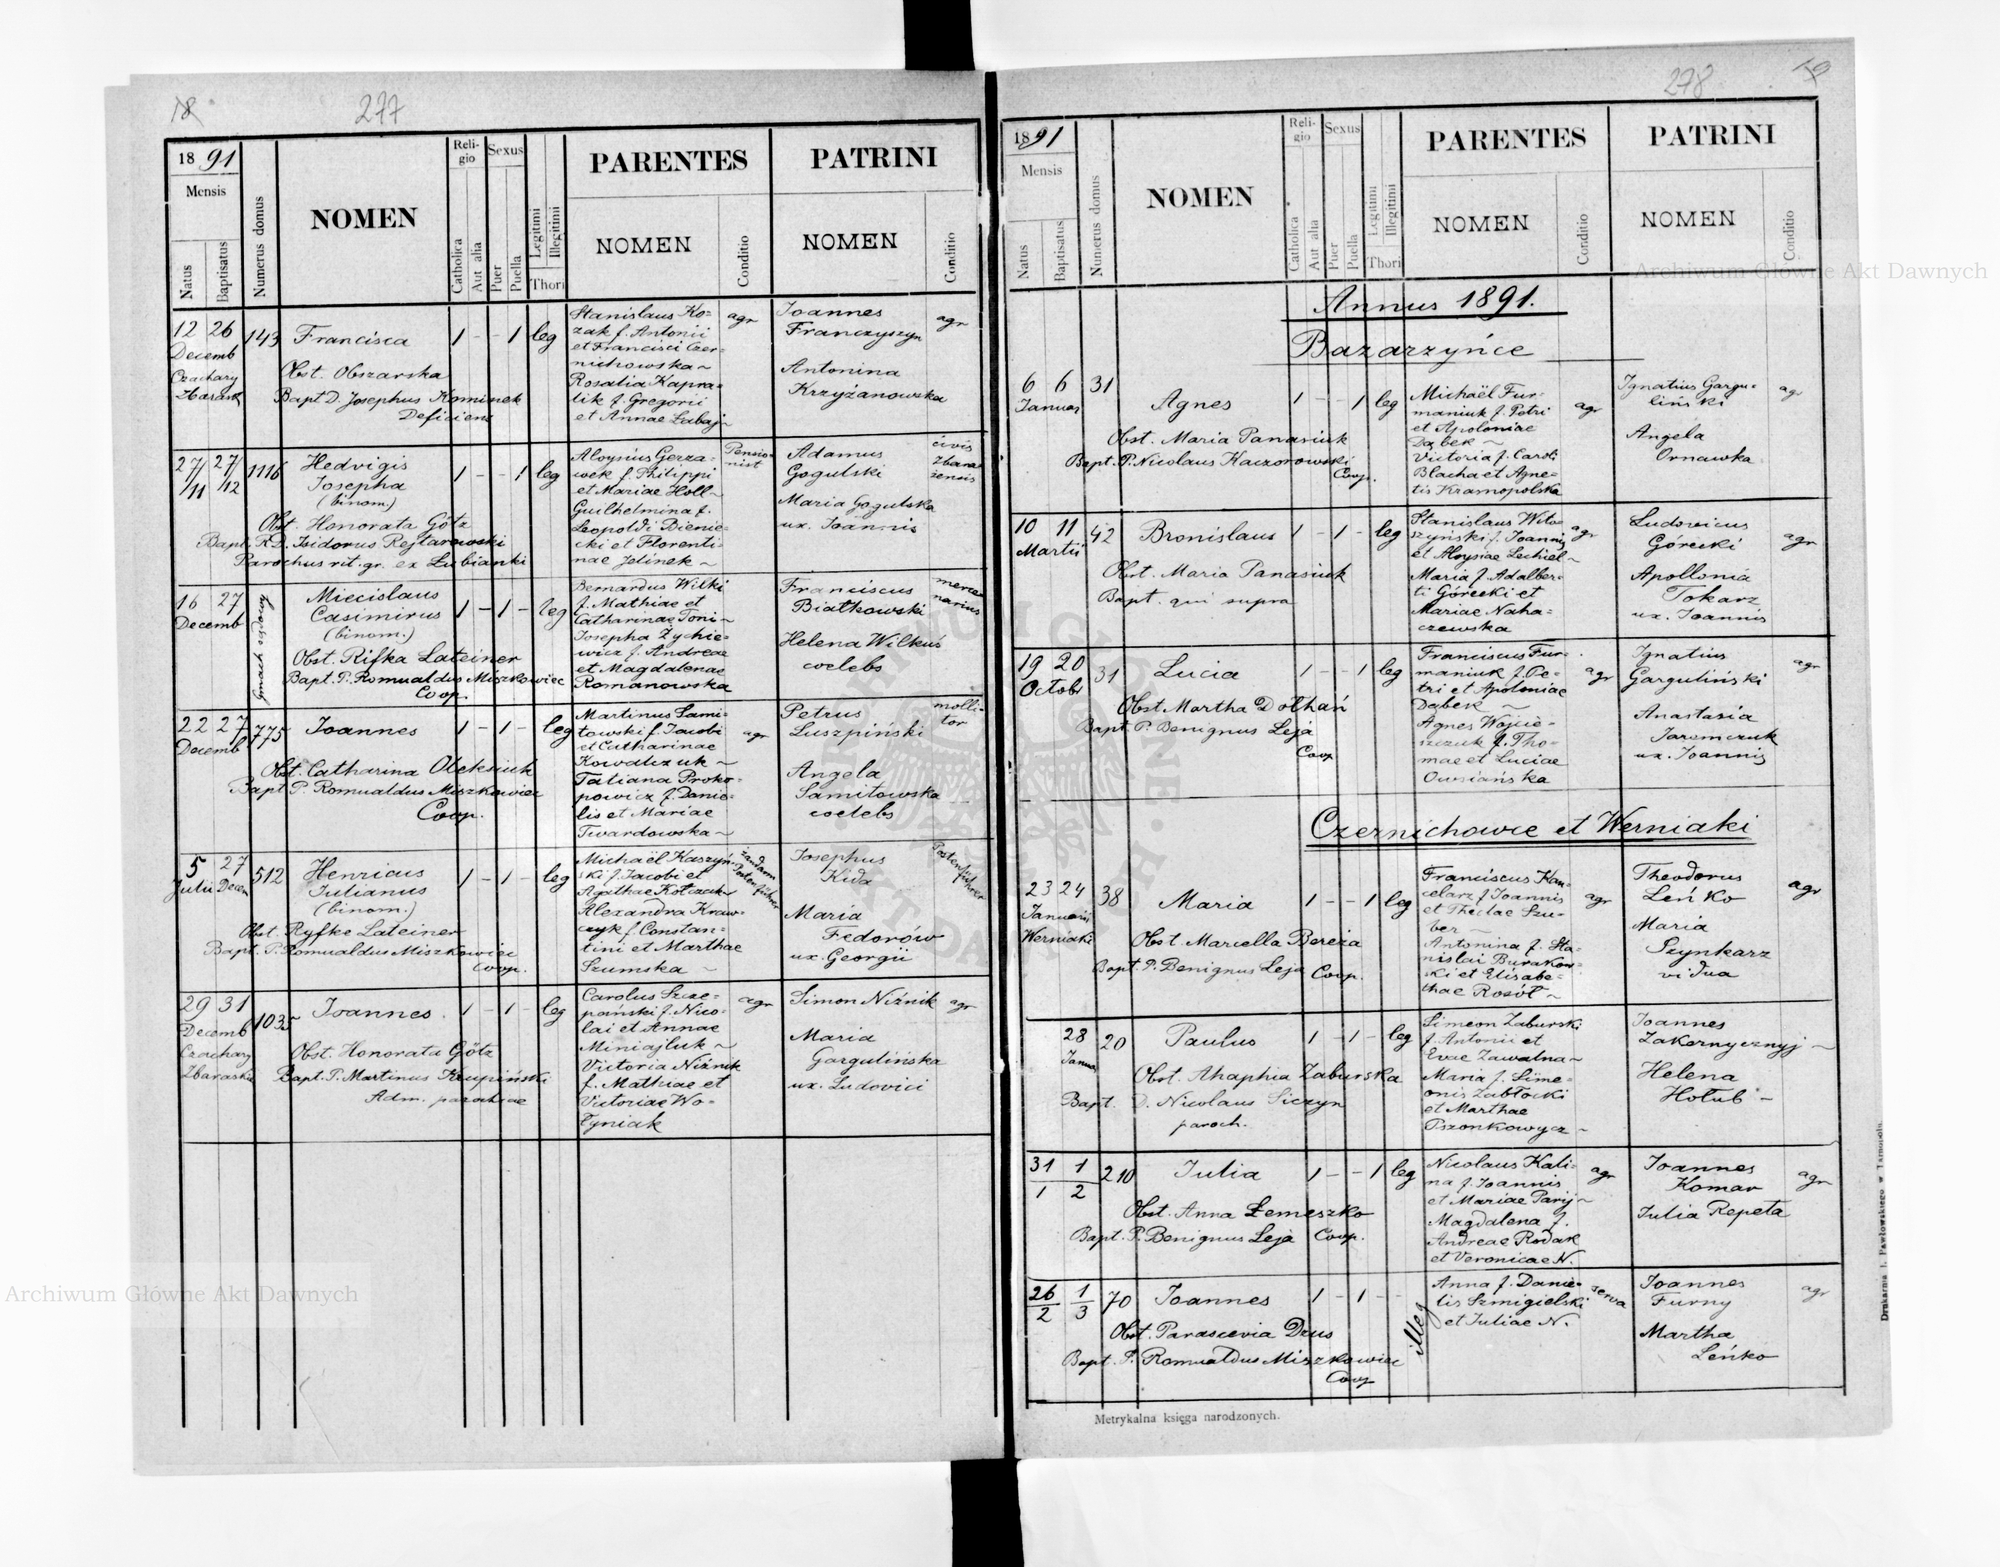 18
277
18 91
Mensis
Natus
Baptisatus
Numerus domus
NOMEN
Religio
Catholica
Aut alia
Sexus
Puer
Puella
Legitimi
Illegitimi
Thori
PARENTES
NOMEN
Conditio
PATRINI
NOMEN
Conditio
12 26
Decemb
Czachary
Zbarask
143
Francisca
1 - - 1 leg
Obst. Obszarska
Bapt D. Josephus Kominek
Deficiens
Stanislaus Ko-
zak f. Antonii
et Francisci Czer-
nichowska ~
Rosalia Kapra-
lik f. Gregorii
et Annae Labaj ~
agr
Joannes
Franczyszyn
Antonina
Krzyżanowska
agr
27/11 27/12
1116
Hedvigis
Josepha
(binom)
1 - - 1 leg
Obst. Honorata Götz
Bapt. R.D. Isidorus Rejtarowski
Parochus rit. gr. ex Lubianki
Aloysius Gerza-
wek f. Philippi
et Mariae Holl ~
Guilhelmina f.
Leopoldi Bienie-
cki et Florenti-
nae Jelinek ~
Pensio-
nist
Adamus
Gogulski
Maria Gogulska
ux. Joannis
civis
Zbara-
zensis
16 27
Decemb
Gmach sądowy
Miecislaus
Casimirus
(binom.)
1 - 1 - leg
Obst. Rifka Lateiner
Bapt. P. Romualdus Miszkowiec
Coop.
Bernardus Wilki
f. Mathiae et
Catharinae Toni ~
Josepha Żychie-
wicz f. Andreae
et Magdalenae
Romanowska
Franciscus
Białkowski
Helena Wilkuś
coelebs
merce-
narius
22 27
Decemb
775
Joannes
1 - 1 - leg
Obst. Catharina Oleksiuk
Bapt P. Romualdus Miszkowiec
Coop.
Martinus Sami-
towski f. Jacobi
et Catharinae
Kowalczuk ~
Tatiana Proko-
powicz f. Danie-
lis et Mariae
Twardowska ~
agr
Petrus
Luszpiński
Angela
Samitowska
coelebs
molli-
tor
5 27
Julii Decem
512
Henricus
Julianus
(binom.)
1 - 1 - leg
Obst. Ryfke Lateiner
Bapt. P. Romualdus Miszkowiec
Coop.
Michaël Kaszyń-
ski f. Jacobi et
Agathae Kolczuk
Alexandra Kraw-
czyk f. Constan-
tini et Marthae
Szumska ~
żandarm
Postenführer
Josephus
Kida
Maria
Fedorów
ux. Georgii
Postenführer
29 31
Decemb
Czachary
Zbaraski
1035
Joannes
1 - 1 - leg
Obst. Honorata Götz
Bapt. P. Martinus Krupiński
Adm. parochiae
Carolus Szcze-
pański f. Nico-
lai et Annae
Miniajluk ~
Victoria Niżnik
f. Mathiae et
Victoriae Wo-
łyniak
agr
Simon Niżnik
Maria
Gargulińska
ux. Ludovici
agr
278
19
1891
Mensis
Natus
Baptisatus
Numerus domus
NOMEN
Religio
Catholica
Aut alia
Sexus
Puer
Puella
Legitimi
Illegitimi
Thori
PARENTES
NOMEN
Conditio
PATRINI
NOMEN
Conditio
Annus 1891.
Bazarzyńce
6 6
Januar
31
Agnes
1 - - 1 leg
Obst. Maria Panasiuk
Bapt. P. Nicolaus Kaczorowski
Coop.
Michaël Fur-
maniuk f. Petri
et Apoloniae
Dąbek ~
Victoria f. Caroli
Blacha et Agne-
tis Kramopolska
agr
Ignatius Gargu-
liński
Angela
Ornawka
agr
10 11
Martii
42
Bronislaus
1 - 1 - leg
Obst. Maria Panasiuk
Bapt. qui supra
Stanislaus Wito-
szyński f. Joannis
et Aloysiae Lechiel ~
Maria f. Adalber-
ti Górecki et
Mariae Naha-
czewska
agr
Ludovicus
Górecki
Apollonia
Tokarz
ux. Joannis
agr
19 20
Octobr
31
Lucia
1 - - 1 leg
Obst. Martha Dołhań
Bapt. P. Benignus Leja
Coop
Franciscus Fur-
maniuk f. Pe-
tri et Apoloniae
Dąbek ~
Agnes Wojcie-
szczuk f. Tho-
mae et Luciae
Owsiańska
agr
Ignatius
Garguliński
Anastasia
Jaremczuk
ux. Joannis
agr
Czernichowce et Werniaki
23 24
Januarii
Werniaki
38
Maria
1 - - 1 leg
Obst. Marcella Bereza
Bapt. P. Benignus Leja Coop.
Franciscus Kan-
celarz f. Joannis
et Theclae Szu-
ber ~
Antonina f. Sta-
nislai Burakow-
ski et Elisabe-
thae Rosół ~
agr
Theodorus
Leńko
Maria
Szynkarz
vidua
agr
28
Januar
20
Paulus
1 - 1 - leg
Obst. Ahaphia Zaburska
Bapt. D. Nicolaus Siczyn
paroch.
Simeon Zaburski
f. Antonii et
Evae Zawalna ~
Maria f. Sime-
onis Zabłocki
et Marthae
Pszonkowycz ~
Joannes
Zakornycznyj ~
Helena
Hołub ~
31/1 1/2
210
Julia
1 - - 1 leg
Obst. Anna Łemeszko
Bapt. P. Benignus Leja Coop.
Nicolaus Kali-
na f. Joannis
et Mariae Parij ~
Magdalena f.
Andreae Rodak
et Veronicae N.
agr
Joannes
Komar
Julia Repeta
agr
26/2 1/3
70
Joannes
1 - 1 -
illeg
Obst. Parascevia Drus
Bapt. P. Romualdus Miszkowiec
Coop
Anna f. Danie-
lis Szmigielski
et Juliae N.
serva
Joannes
Furny
Martha
Leńko
agr
Metrykalna księga narodzonych.
Drukarnia L. Pawłowskiego w Tarnopolu.
Archiwum Główne Akt Dawnych
Archiwum Główne Akt Dawnych